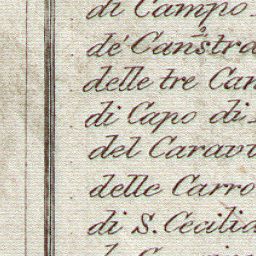 di Campo
dé Canestra
delle tre Can
di Capo di
del Caravi
delle Carro
di S. Cecilia